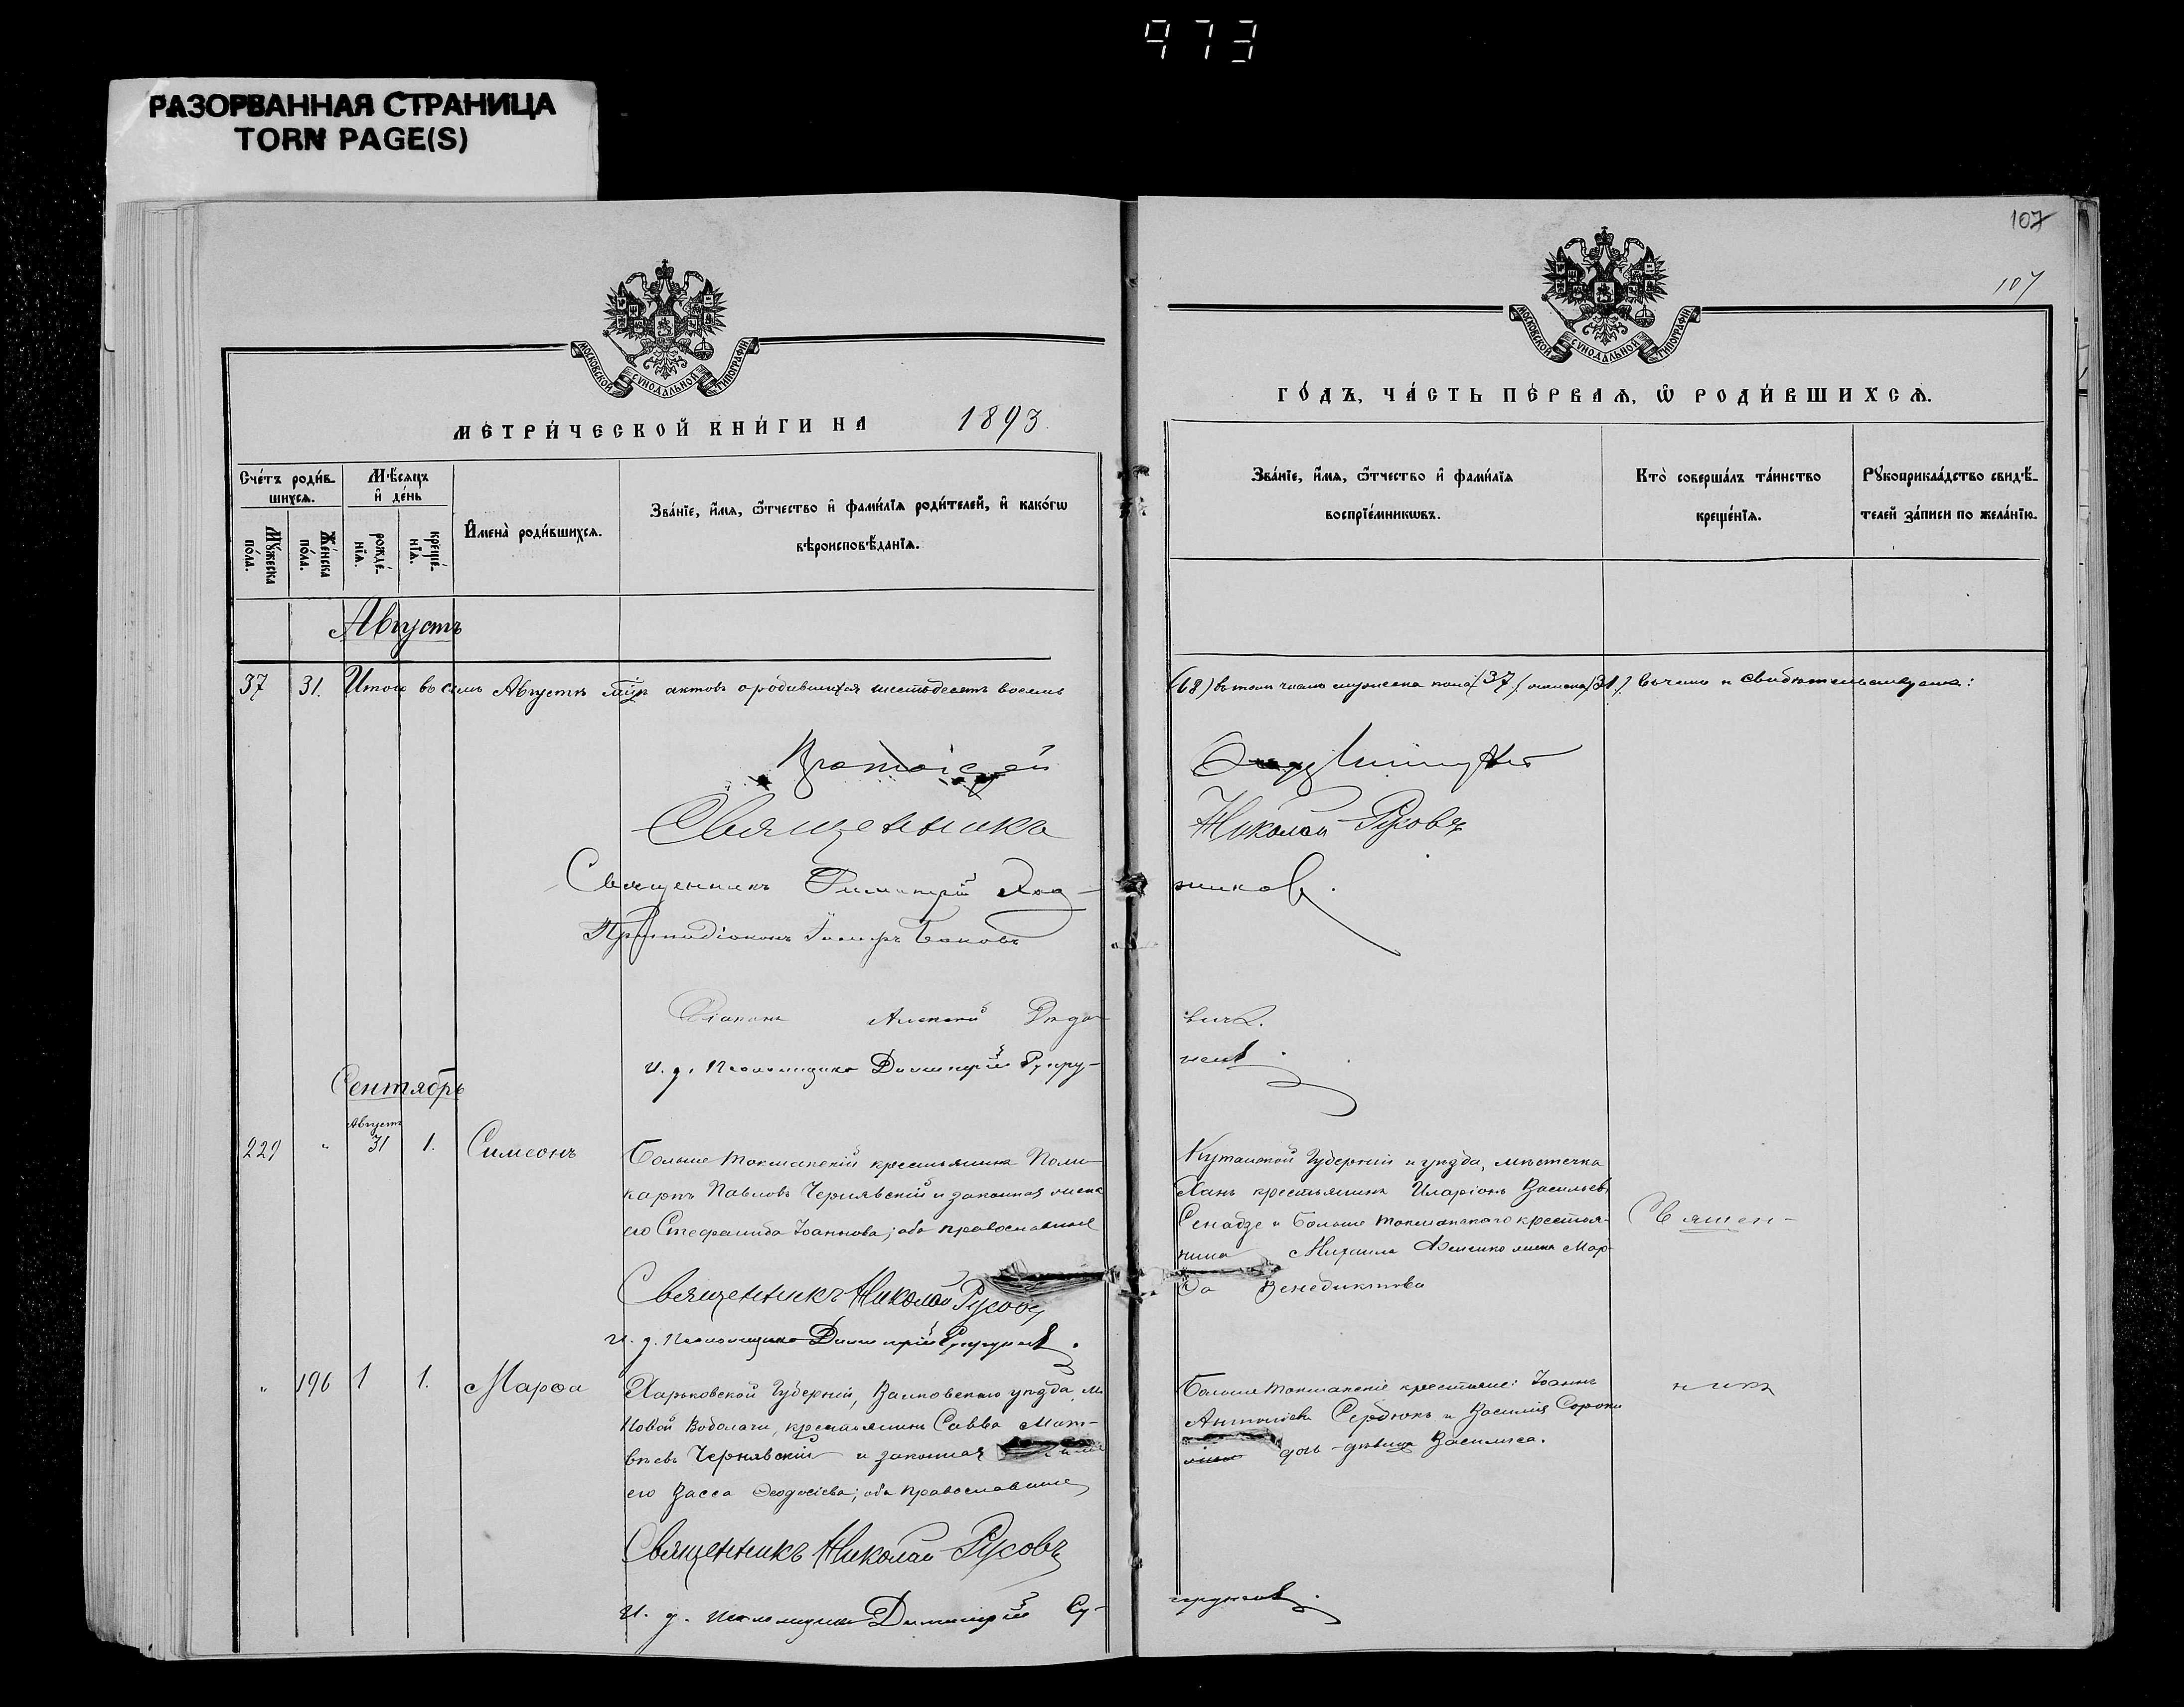 973
РАЗОРВАННАЯ СТРАНИЦА
TORN PAGE(S)
107
107
МОСКОВСКОЙ СѴНОДАЛЬНОЙ ТИПОГРАФІИ
МОСКОВСКОЙ СѴНОДАЛЬНОЙ ТИПОГРАФІИ
МЕТРИ́ЧЕСКОЙ КНИ́ГИ НА 1893.
ГО́ДЪ, ЧА́СТЬ ПЕ́РВАѦ, Ѡ҆ РОДИ́ВШИХСѦ.
Сче́тъ роди́в-
шихсѧ.
Мѣ́сѧцъ
и҆ де́нь
Мꙋ́жеска
по́ла.
Же́нска
по́ла.
рожде́-
нїѧ.
креще́-
нїѧ.
И҆мена̀ роди́вшихсѧ.
Зва́нїе, и҆́мѧ, ѻ҆́тчество и҆ фами́лїѧ роди́телей, и҆ како́гѡ
вѣроисповѣ́данїѧ.
Зва́нїе, и҆́мѧ, ѻ҆́тчество и҆ фами́лїѧ
воспрїе́мникѡвъ.
Кто̀ соверша́лъ та́инство
креще́нїѧ.
Рꙋкоприкла́дство свидѣ́-
телей за́писи по жела́нїю.
Августъ
37 31. Итого въ семъ Августѣ м͞цѣ актовъ о родившихся шестьдесятъ восемь
(68) въ томъ числѣ мужеска пола (37) женска (31) въ чемъ и свидѣтельствуемъ:
Священникъ Николай Русовъ
Священникъ Димитрій
Протодіаконъ
Діаконъ Алексій
и. д. Псаломщика Димитрій
Сентябрь
229 " Августа 31 1. Симеонъ
Больше Токмакскій крестьянинъ Поли-
карпъ Павловъ Чернявскій и законная жена
его Стефанида Іоаннова; оба православные
Священникъ Николай Русовъ
и. д. Псаломщика Димитрій
Кутаиской Губерніи и уѣзда, мѣстечка
Хань крестьянинъ Иларіонъ Васильевъ
и Больше Токмакскаго крестья-
нина Михаила жена Мар-
ѳа Венедиктова
Священ-
" 196 1 1. Марѳа
Харьковской Губерніи, Валковскаго уѣзда, м.
Новой Водолаги, крестьянинъ Савва Мат-
вѣевъ Чернявскій и законная
его Васса Ѳеодосіева; оба православные
Священникъ Николай Русовъ
и. д. псаломщика Димитрій Су-
Больше Токмакскіе крестьяне: Іоаннъ
Сердюкъ и Василія Сороки
дочь-дѣвица Василиса.
никъ